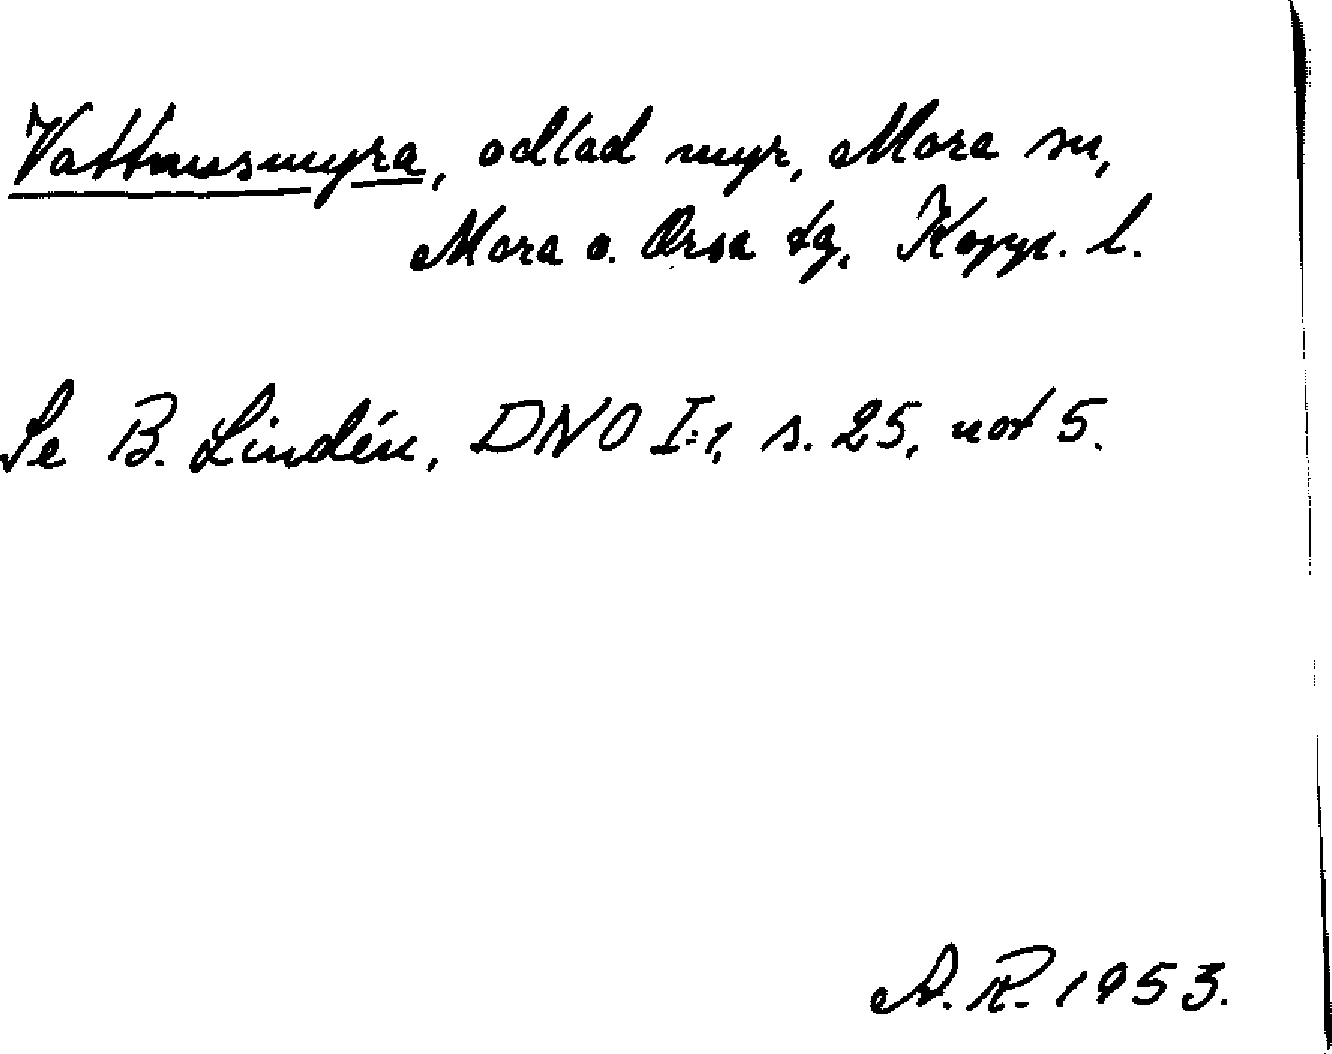 Vattnusmyra, odlad myr, Mora sn,
Mora o. Orsa tg, Kopp. l.
Se B. Lindén, DNO I:1, s. 25, not 5.
A.R. 1953.